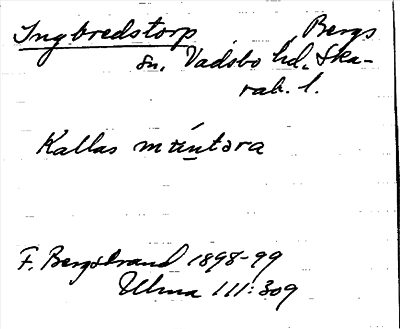 Ingbredstorp Bergs
sn. Vadsbo hd. Ska-
rab. l.
Kallas mäntəra
F. Bergstrand 1898-99
Ulma 111:309